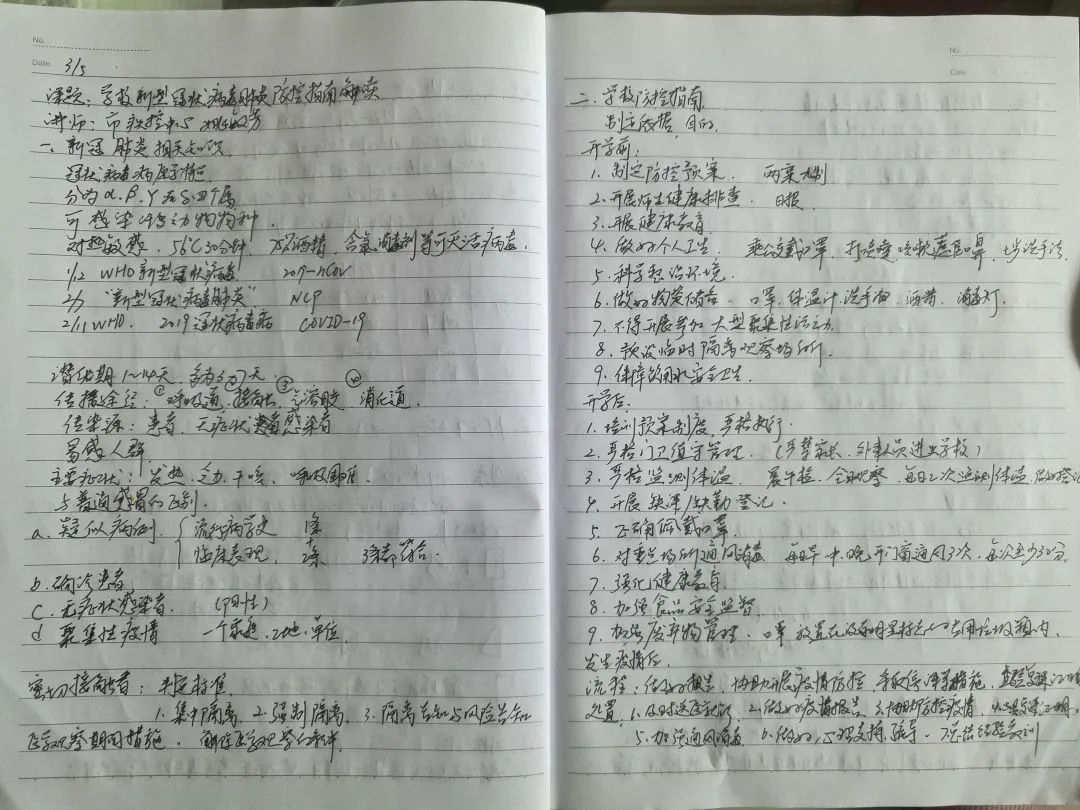 No.
Date 3/5
课题：学校新型冠状病毒肺炎防控指南解读
讲师：市疾控中心
一、新冠肺炎相关知识
冠状病毒病原学特征
分为α、β、γ和δ四个属
可感染很多动物物种
对热敏感．56℃30分钟 75%酒精．含氯消毒剂等可灭活病毒．
1/2 WHO 新型冠状病毒 2019-nCoV
2/ "新型冠状病毒肺炎" NCP
2/11 WHO． 2019冠状病毒病 COVID-19
潜伏期1~14天．多为3~7天．
传播途径：①呼吸道，②接触，③气溶胶，④消化道．
传染源：患者，无症状感染者
易感人群
主要症状：发热、乏力、干咳、呼吸困难
与普通感冒的区别．
a．疑似病例 { 流行病学史 1条
+
临床表现． 2条
b．确诊患者
c．无症状感染者． （阳性）
d 聚集性疫情 一个家庭，工地，单位．
密切接触者：判定标准
1．集中隔离，2．强制隔离，3．隔离告知与风险告知
医学观察期间措施．解除医学观察条件
No.
Date
二．学校防控指南
制定依据，目的．
开学前：
1．制定防控预案． 两案九制
2．开展师生健康排查． 日报
3．开展健康教育
4．做好个人卫生． 乘公交戴口罩，打喷嚏咳嗽遮口鼻，七步洗手法．
5．科学整治环境．
6．做好物资储备． 口罩，体温计，洗手液，酒精，消毒灯
7．不得开展参加大型聚集性活动．
8．预设临时隔离观察场所．
9．保障饮用水安全卫生．
开学后：
1．培训预案制度，严格执行．
2．严格门卫值守管理．（严禁家长、外来人员进出学校）
3．严格监测体温 晨午检．全日观察 每日2次监测体温．做好登记
4．开展缺课/缺勤登记．
5．正确佩戴口罩．
6．对重点场所通风消毒 每日早、中、晚开门窗通风3次，每次至少30分．
7．强化健康教育．
8．加强食品安全监督．
9．加强废弃物管理．口罩放置在没有明显标志的专用垃圾箱内．
发生疫情后．
流程：做好报告，协助开展疫情防控，采取停课等措施，
处置．1．及时送医就诊．2．做好疫情报告．3．协助防控疫情．
5．加强通风消毒 6．做好心理支持、疏导．7总结经验教训